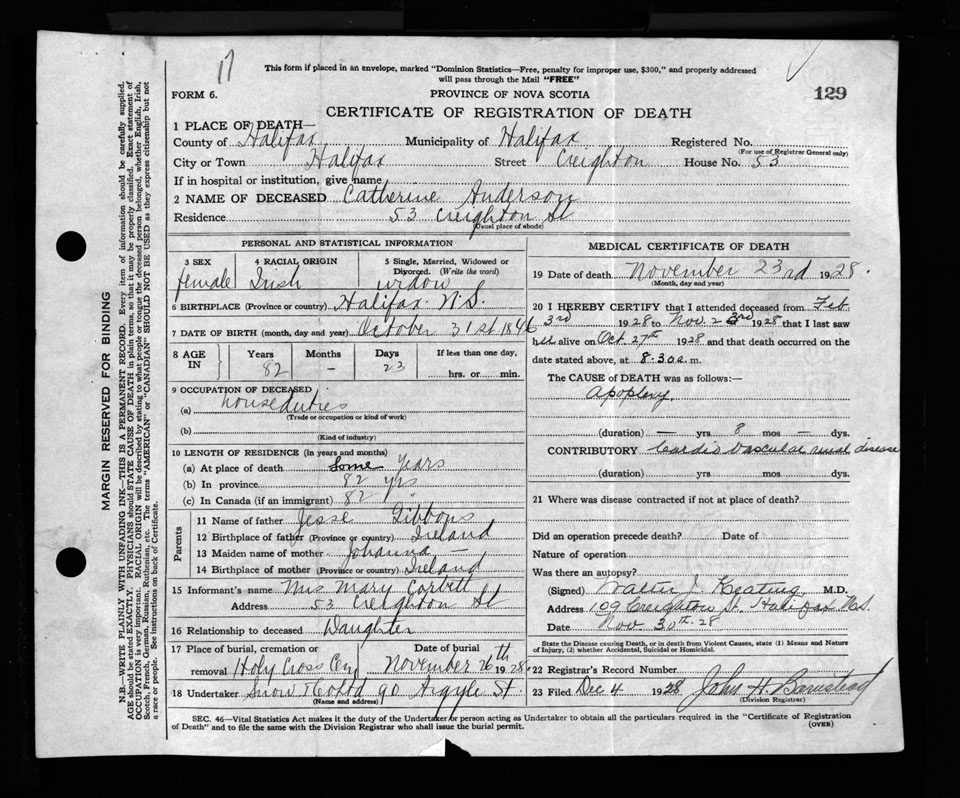 17
This form if placed in an envelope, marked "Dominion Statistics—Free, penalty for improper use, $300," and properly addressed
will pass through the Mail "FREE"
FORM 6.
PROVINCE OF NOVA SCOTIA
129
CERTIFICATE OF REGISTRATION OF DEATH
1 PLACE OF DEATH—
County of Halifax Municipality of Halifax Registered No.
(For use of Registrar General only)
City or Town Halifax Street Creighton House No. 53
If in hospital or institution, give name
2 NAME OF DECEASED Catherine Anderson
Residence 53 Creighton St
(Usual place of abode)
MARGIN RESERVED FOR BINDING
N.B.—WRITE PLAINLY WITH UNFADING INK—THIS IS A PERMANENT RECORD. Every item of information should be carefully supplied.
AGE should be stated EXACTLY. PHYSICIANS should STATE CAUSE OF DEATH in plain terms, so that it may be properly classified. Exact statement of
OCCUPATION is very important. RACIAL ORIGIN will be described by stating to what people or tongue the deceased person belonged, whether English, Irish,
Scotch, French, German, Russian, Ruthenian, etc. The terms "AMERICAN" or "CANADIAN" SHOULD NOT BE USED as they express citizenship but not
a race or people. See instructions on back of Certificate.
PERSONAL AND STATISTICAL INFORMATION
3 SEX 4 RACIAL ORIGIN 5 Single, Married, Widowed or
Divorced. (Write the word)
female Irish widow
6 BIRTHPLACE (Province or country) Halifax N.S.
7 DATE OF BIRTH (month, day and year) October 31st 1846
8 AGE IN Years Months Days If less than one day,
82 – 23 hrs. or min.
9 OCCUPATION OF DECEASED
(a) house duties
(Trade or occupation or kind of work)
(b)
(Kind of industry)
10 LENGTH OF RESIDENCE (in years and months)
(a) At place of death Some years
(b) In province 82 yrs
(c) In Canada (if an immigrant) 82 "
Parents
11 Name of father Jesse Gibbons
12 Birthplace of father (Province or country) Ireland
13 Maiden name of mother Johanna —
14 Birthplace of mother (Province or country) Ireland
15 Informant's name Mrs Mary Corbett
Address 53 Creighton St
16 Relationship to deceased Daughter
17 Place of burial, cremation or Date of burial
removal Holy Cross Cem November 26th 1928
18 Undertaker Snow & Co Ltd 90 Argyle St.
(Name and address)
MEDICAL CERTIFICATE OF DEATH
19 Date of death November 23rd 1928.
(Month, day and year)
20 I HEREBY CERTIFY that I attended deceased from Feb.
3rd 1928 to Nov. 23rd 1928 that I last saw
her alive on Oct 27th 1928 and that death occurred on the
date stated above, at 8.30 a. m.
The CAUSE OF DEATH was as follows:—
Apoplexy.
(duration) — yrs 8 mos — dys.
CONTRIBUTORY Cardio Vascular renal disease
(duration) yrs mos dys.
21 Where was disease contracted if not at place of death?
Did an operation precede death? Date of
Nature of operation
Was there an autopsy?
(Signed) Walter J. Keating, M.D.
Address 109 Creighton St. Halifax N.S.
Date Nov 30th. 28
State the Disease causing Death, or in death from Violent Causes, state (1) Means and Nature
of Injury, (2) whether Accidental, Suicidal or Homicidal.
22 Registrar's Record Number
23 Filed Dec 4 1928 John H. Barnstead
(Division Registrar)
SEC. 46—Vital Statistics Act makes it the duty of the Undertaker or person acting as Undertaker to obtain all the particulars required in the "Certificate of Registration
of Death" and to file the same with the Division Registrar who shall issue the burial permit.
(OVER)